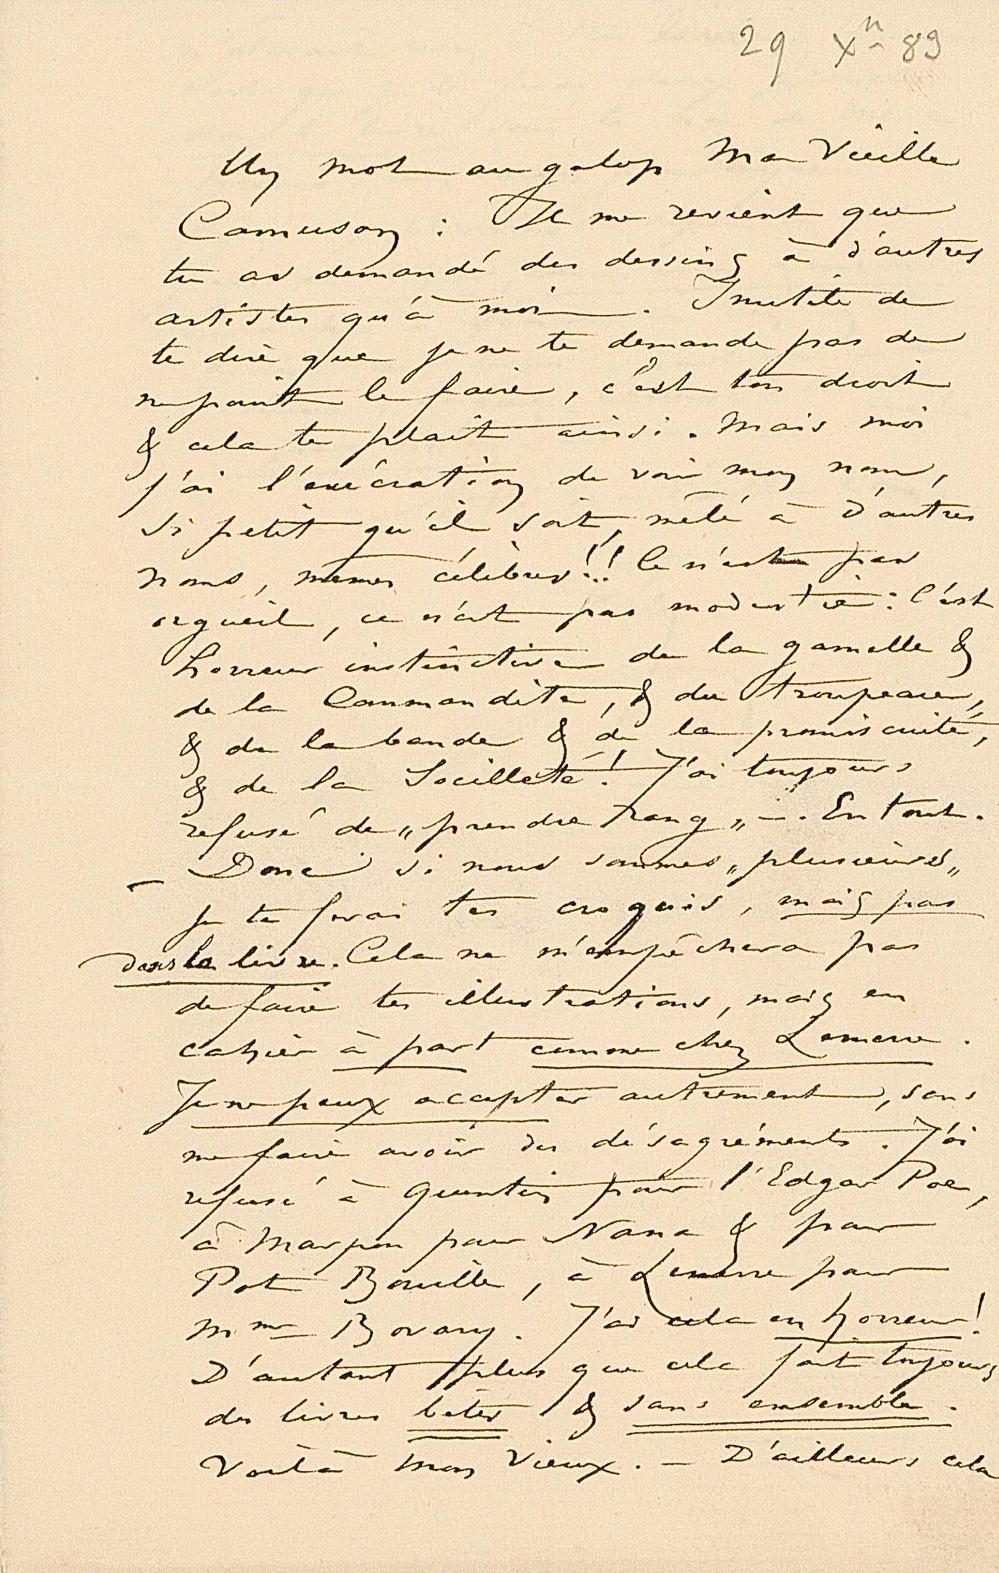 29 Xre 89
Un mot au galop Ma Vieille
Camuson : Il me revient que
tu as demandé des dessins à d'autres
artistes qu'à moi. Inutile de
te dire que je ne te demande pas de
ne point le faire, c'est ton droit
& cela te plait ainsi. Mais moi
j'ai l'exécration de voir mon nom,
si petit qu'il soit, mêlé à d'autres
noms, mêmes célèbres!! Ce n'est pas
orgueil, ce n'est pas modestie : C'est
horreur instinctive de la gamelle &
de la Commandite, & du troupeau,
& de la bande & de la promiscuité,
& de la Socilleté! J'ai toujours
refusé de „prendre rang„ —. En tout.
— Donc si nous sommes „plusieurs„
je te ferai tes croquis, mais pas
dans le livre. Cela ne m'empêchera pas
de faire tes illustrations, mais en
cahier à part comme chez Lemerre.
Je ne peux accepter autrement, sans
me faire avoir des désagréments. J'ai
refusé à Quentin pour l'Edgar Poe,
à Marpon pour Nana & pour
Pot Bouille, à Lemerre pour
Mme Bovary. J'ai cela en horreur!
D'autant plus que cela fait toujours
des livres bêtes & sans ensemble.
Voilà mon Vieux. — D'ailleurs cela